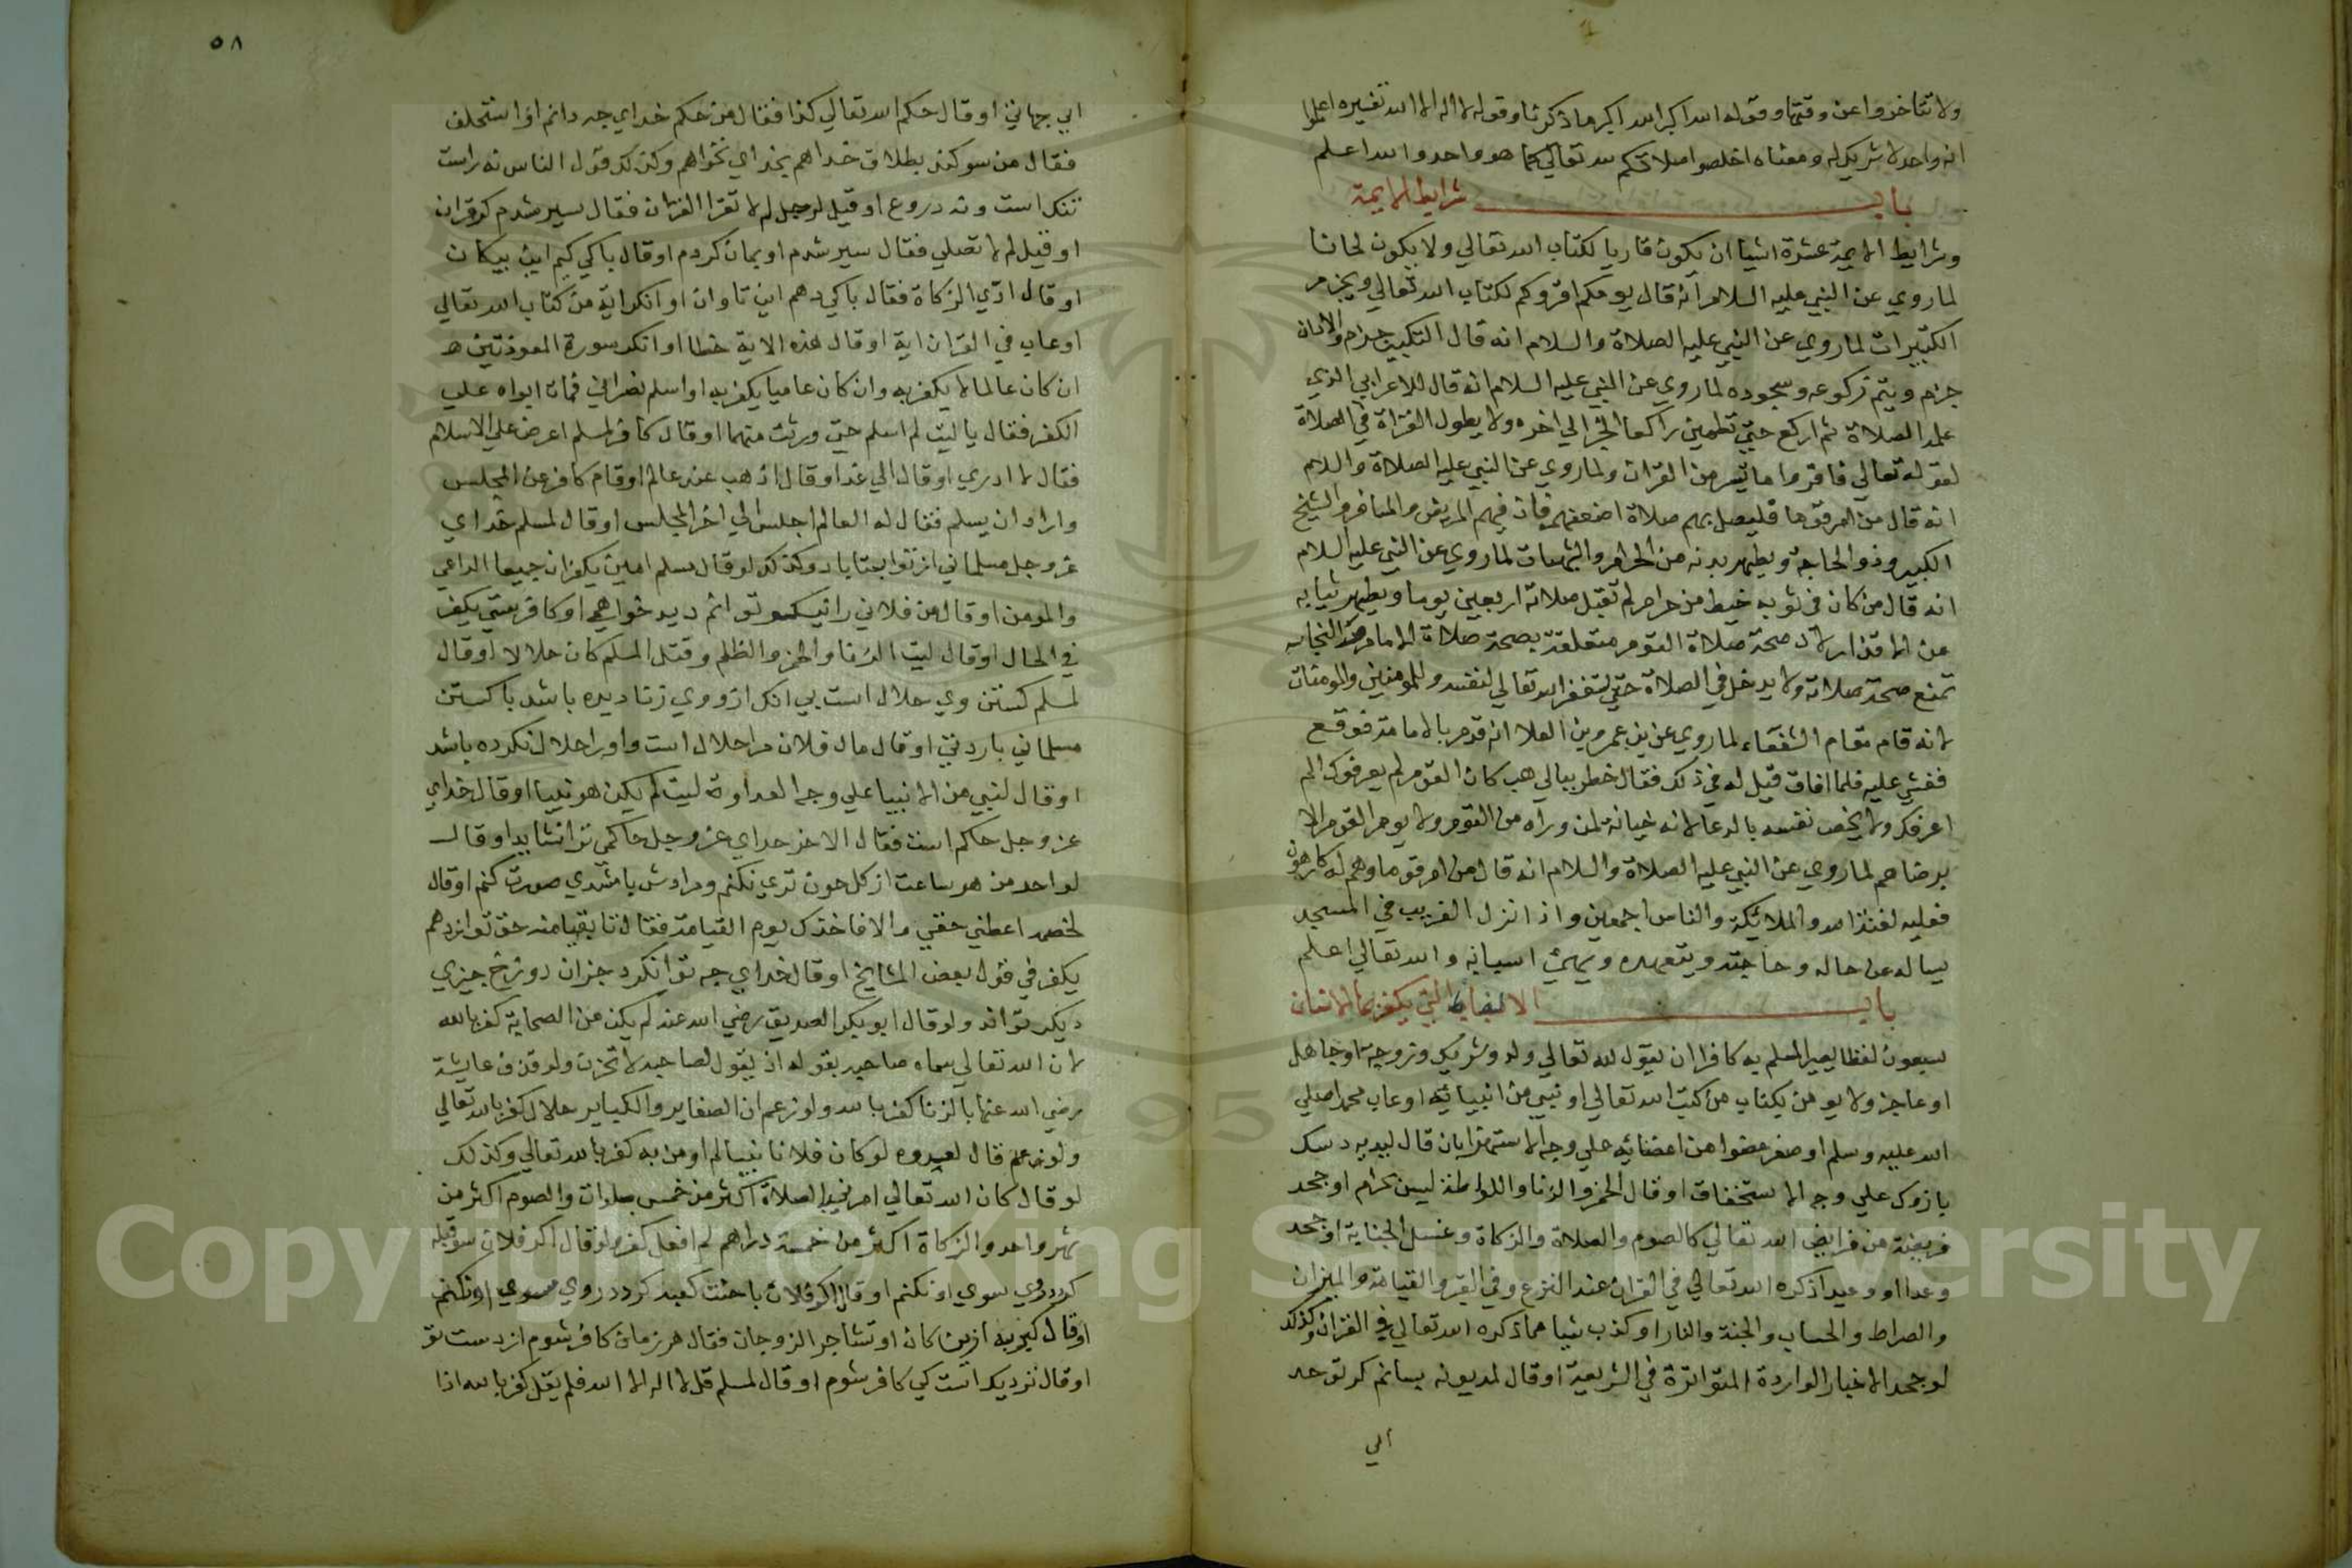 ولا تتاخروا عن وقتها وقوله الله اكبر الله اكبر ما ذكرنا وقوله لا اله الا الله تفسيره اعلموا
انه واحد لا شريك له ومعناه اخلصوا صلاتكم لله تعالي كما هو واحد والله اعلم
باب شرايط الايمة
وشرايط الايمة عشرة اشيا ان يكون قاريا لكتاب الله تعالي ولا يكون لحانا
لما روي عن النبي عليه السلام انه قال يومكم اقروكم لكتاب الله تعالي ويجزم
التكبيرات لما روي عن النبي عليه الصلاة والسلام انه قال التكبير جزم والاذان
جزم ويتم ركوعه وسجوده لما روي عن النبي عليه السلام انه قال للاعرابي الذي
علمه الصلاة ثم اركع حتي تطمين راكعا الخ الي اخره ولا يطول القراة في الصلاة
لقوله تعالي فاقروا ما تيسر من القران ولما روي عن النبي عليه الصلاة والسلام
انه قال من ام قوما فليصل بهم صلاة اضعفهم فان فيهم المريض والمسافر والشيخ
الكبير وذو الحاجة ويطهر بدنه من الحرام والشبهات لما روي عن النبي عليه السلام
انه قال من كان في ثوبه خيط من حرام لم تقبل صلاته اربعين يوما ويطهر ثيابه
عن الاقذار لان صحة صلاة القوم متعلقة بصحة صلاة الامام النجاسه
تمنع صحة صلاته ولا يدخل في الصلاة حتي يستغفر الله تعالي لنفسه وللمومنين والمومنات
لانه قام مقام الشفعاء لما روي عن بن عمرو بن العلا انه قدم بالامامة فوقع
فغشي عليه فلما افاق قيل له في ذلك فقال خطر ببالي هب كان القوم لم يعرفوك الم
اعرفك ولا يخص نفسه بالدعا لانه خيانة لمن وراه من القوم ولا يوم القوم الا
برضاهم لما روي عن النبي عليه الصلاة والسلام انه قال من ام قوما وهم له كارهون
فعليه لعنة الله والملائكة والناس اجمعين واذا نزل الغريب في المسجد
يساله عن حاله وحاجته ويتعهده ويهيئ اسبابه والله تعالي اعلم
باب الالفاظ التي يكفر بها الانسان
سبعون لفظا يصير المسلم به كافرا ان يقول لله تعالي ولد وشريك وزوجة او جاهل
او عاجز ولا يومن بكتاب من كتب الله تعالي او نبي من انبيائه او عاب محمدا صلي
الله عليه وسلم او صغر عضوا من اعضائه علي وجه الاستهزا بان قال ليديه دستك
يا زوك علي وجه الاستخفاف او قال الخمر والزنا واللواطة ليس بحرام او جحد
فريضة من فرايض الله تعالي كالصوم والصلاة والزكاة وغسل الجنابة او جحد
وعدا او وعيدا ذكره الله تعالي في القران عند النزع وفي القبر والقيامة والميزان
والصراط والحساب والجنة والنار او كذب شيا مما ذكره الله تعالي في القران وكذلك
لو جحد الاخبار الواردة المتواترة في الشريعة او قال لمديونه بسانم كر توحد
الي
٥٨
ابي جهاني او قال حكم الله تعالي كذا فقال من حكم خداي جه دانم او استحلف
فقال من سوكند بطلاق خداهم بخداي نخواهم وكذلك قول الناس نه راست
تنك است ونه دروغ او قيل لرجل لم لا تقرا القران فقال سير شدم كرقران
او قيل لم لا تصلي فقال سير شدم او بمان كردم او قال باكي كيم اين بيكان
او قال ادي الزكاة فقال باكي دهم اين تاوان او انكر اية من كتاب الله تعالي
او عاب في القران اية او قال هذه الاية خطا او انكر سورة المعوذتين هـ
ان كان عالما لا يكفر به وان كان عاميا يكفر به او اسلم نصراني فمات ابواه علي
الكفر فقال يا ليت لم اسلم حتي ورثت منهما او قال كافر لمسلم اعرض علي الاسلام
فقال لا ادري او قال الي غد او قال اذهب عند عالم او قام كافر عن المجلس
واراد ان يسلم فقال له العالم اجلس الي اخر المجلس او قال لمسلم خداي
عز وجل مسلماني از تو بستاباد وكذلك لو قال مسلم امين يكفران جميعا الداعي
والمومن او قال من فلاني را نيكمو تو انم ديد خواهم او كافر متي يكفر
في الحال او قال ليت الزنا والخمر والظلم وقتل المسلم كان حلالا او قال
لمسلم كشتن وي حلال است بي انك از وي زنا ديده باشد باكستن
مسلماني باردتي او قال مال فلان مرا حلال است واورا حلال نكرده باشد
او قال لنبي من الانبيا علي وجه العداوة ليت لم يكن هو نبيا او قال خداي
عز وجل حاكم است فقال الاخر خداي عز وجل حاكمي ترا نشايد او قال
لواحد من هو ساعت از كل حون توي نكنم ومرادش با مشدي صورت كنم او قال
لخصمه اعطني حقي والا فاخذك يوم القيامة فقال تا بقيامته حق توانزدهم
يكفر في قول بعض المشايخ او قال خداي جه توانكرد جزان دوزخ جيزي
ديكر تواند ولو قال ابو بكر الصديق رضي الله عنه لم يكن من الصحابة كفر بالله
لان الله تعالي سماه صاحبه بقوله اذ يقول لصاحبه لا تحزن ولو قذف عايشة
رضي الله عنها بالزنا كفر بالله ولو زعم ان الصغاير والكباير حلال كفر بالله تعالي
ولو زعم قال لعبده لو كان فلانا نبيا لم اومن به كفر بالله تعالي وكذلك
لو قال كان الله تعالي امر نبيه الصلاة اكثر من خمس صلوات والصوم اكثر من
شهر واحد والزكاة اكثر من خمسة دراهم لم افعل كفر او قال اكر فلان سو قبله
كرددوي سوي او نكنم او قال اكر فلان با حنت كعبه كردد روي سوي او نكنم
او قال كيزيه ازين كان او تشاجر الزوجان فقال هر زمان كافر شوم از دست تو
او قال نزديك است كي كافر شوم او قال لمسلم قل لا اله الا الله فلم يقل كفر بالله اذا
Copyright © King Saud University